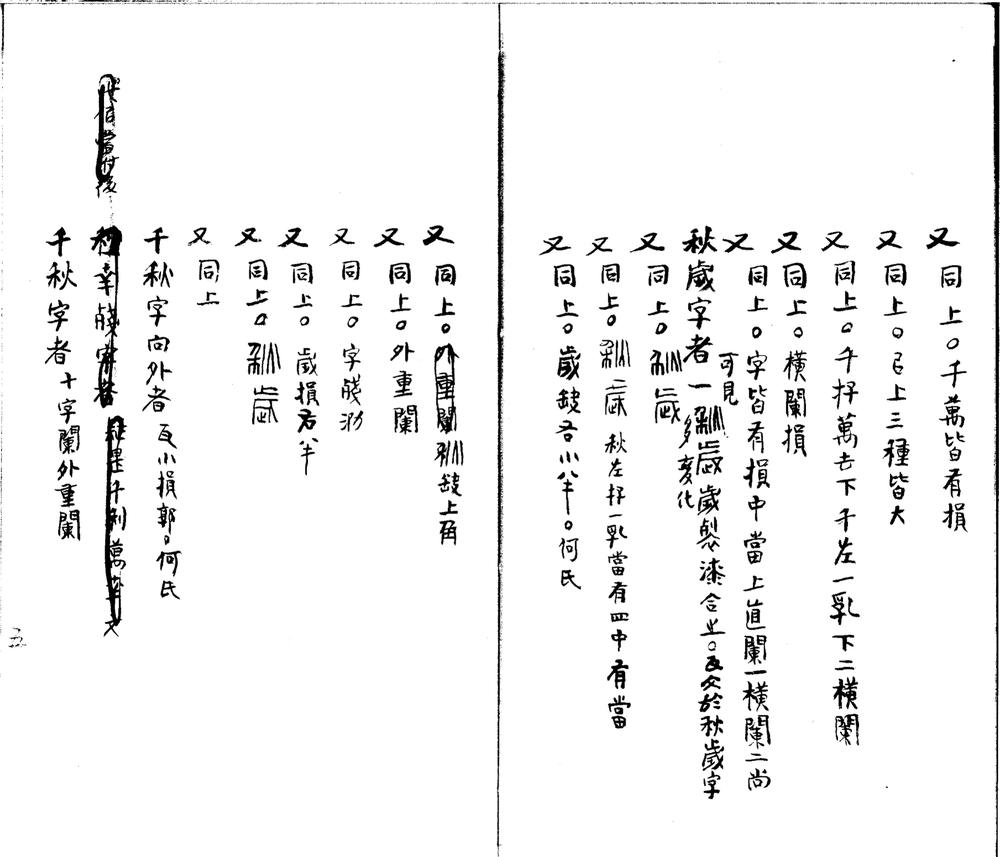 又 同上。千萬皆有損
又 同上。已上三種皆大
又 同上。千抒萬去下千左一乳下二橫闌
又 同上。橫闌損
又 同上。字皆有損中當上直闌一橫闌二尚
可見
秋歲字者一 歲歲製漆合止。瓦文於秋歲字
多變化
又 同上。歲
又 同上。秋左抒一乳當有四中有當
又 同上。歲缺右小半。何氏
又 同上。外重闌 缺上角
又 同上。外重闌
又 同上。字殘泐
又 同上。歲損右半
又 同上。
又 同上
千秋字向外者 瓦小損郭。何氏
千秋字者 十字闌外重闌
五